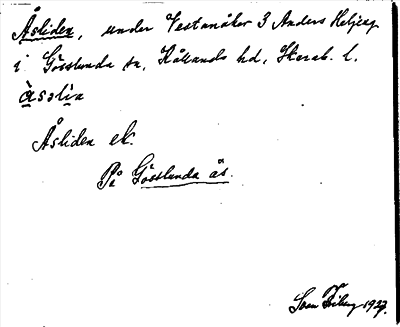 Åsliden, under Vestanåker 3 Anders
i Gösslunda sn, Kållands hd, Skarab. l.
àsslìa
Åsliden ek.
På Gösslunda ås.
Sven 1927.